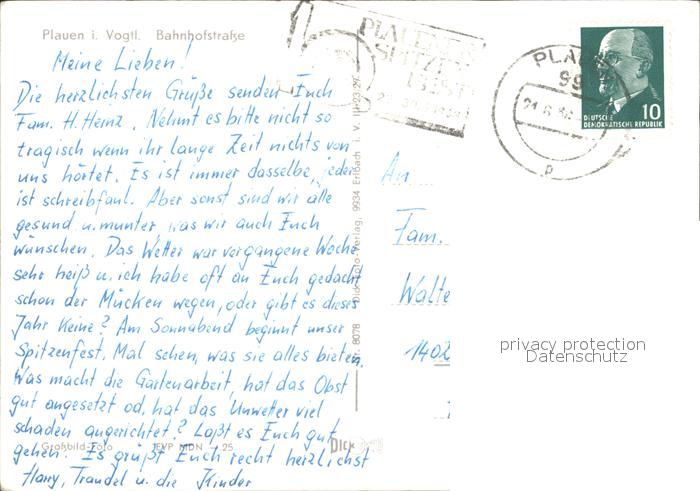 Plauen i. Vogtl. Bahnhofstraße
Meine Lieben!
Die herzlichsten Grüße senden Euch
Fam. H. Heinz. Nehmt es bitte nicht so
tragisch wenn ihr lange Zeit nichts von
uns hörtet. Es ist immer dasselbe, jeder
ist schreibfaul. Aber sonst sind wir alle
gesund u. munter, was wir auch Euch
wünschen. Das Wetter war vergangene Woche
sehr heiß u. ich habe oft an Euch gedacht
schon der Mücken wegen, oder gibt es dieses
Jahr keine? Am Sonnabend beginnt unser
Spitzenfest. Mal sehen, was sie alles bieten.
Was macht die Gartenarbeit, hat das Obst
gut angesetzt od. hat das Unwetter viel
schaden angerichtet? Laßt es Euch gut
gehen. Es grüßt Euch recht herzlichst
Harry, Traudel u. die Kinder
Großbild-Foto EVP MDN -,25
Dick-Foto-Verlag, 9934 Erlbach i. V.
8078
PLAUENER
SPITZEN
FEST
PLAUEN
99
DEUTSCHE
DEMOKRATISCHE REPUBLIK
10
An
Fam.
Walte
1402
privacy protection
Datenschutz